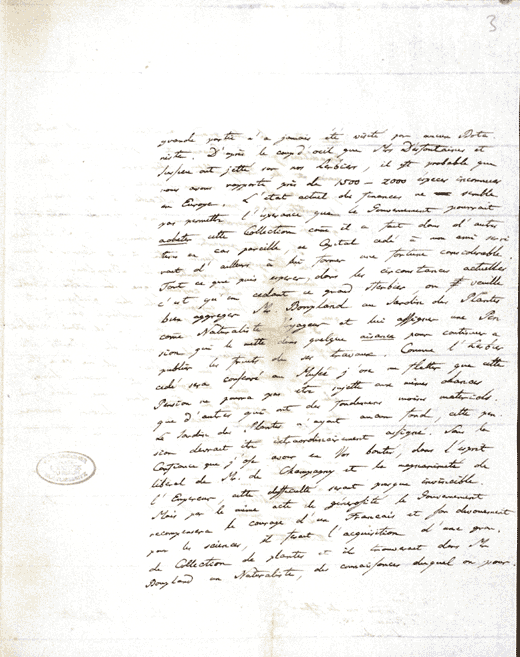 3
grande partie n'a jamais été visité par aucun Bota
niste. D'après le coup d'oeil que Mrs Desfontaines et
Jussieu ont jetté sur nos herbiers, il est probable que
nous avons rapporté près de 1500 – 2000 especes inconnues
en Europe. L'état actuel des finances ne semble
pas permettre l'esperance que le Gouvernement pourrait
acheter cette Collection come il a fait dans d'autres
cas pareille ce Capital cedé à mon ami
d'ailleurs à lui former une fortune considerable.
Tout ce que puis esperer dans les circonstances actuelles
c'est qu'en cedant ce grand Herbier on veuille
bien aggreger M. Bonpland au Jardin des Plantes
come Naturaliste voyageur et lui assigner une Pen
sion qui le mette dans quelque aisance pour continuer a
publier les fruits de ses travaux. Comme l'Herbier
cedé sera conservé au Musée j'ose me flatter que cette
Pension ne pourra pas être sujette aux mêmes chances
que d'autres qui ont des fondemens moins materiels.
Le Jardin des Plantes n'ayant aucun fond, cette pen
sion devrait être extraordinairement assigné. Sans la
Confiance que j'ose avoir en Vos bontés, dans l'esprit
liberal de M. de Champagny et la magnanimité de
l'Empereur, cette difficulté serait presque invincible.
Mais par le même acte de générosité le Gouvernement
recompensera le courage d'un Francais et son devouement
pour les sciences, il ferait l'acquisition d'une gran
de Collection de plantes et il trouverait dans Mr
Bonpland un Naturaliste, des connaissances duquel on pour